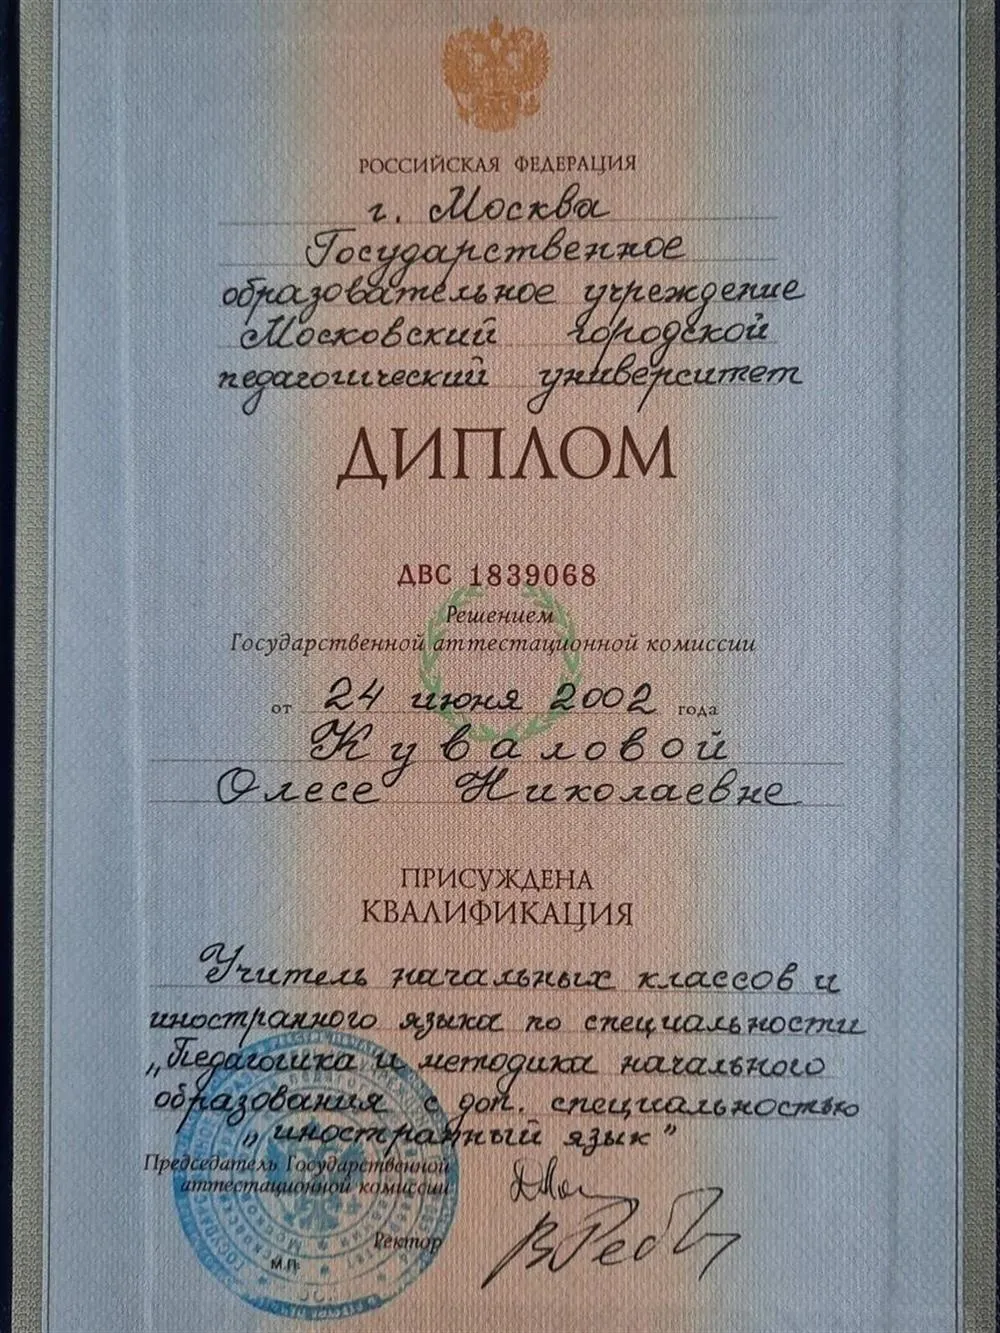 РОССИЙСКАЯ ФЕДЕРАЦИЯ
г. Москва
Государственное
образовательное учреждение
Московский городской
педагогический университет
ДИПЛОМ
ДВС 1839068
Решением
Государственной аттестационной комиссии
от 24 июня 2002 года
Куваловой
Олесе Николаевне
ПРИСУЖДЕНА
КВАЛИФИКАЦИЯ
Учитель начальных классов и
иностранного языка по специальности
„Педагогика и методика начального
образования с доп. специальностью
„иностранный язык"
Председатель Государственной
аттестационной комиссии
Ректор
М.П.